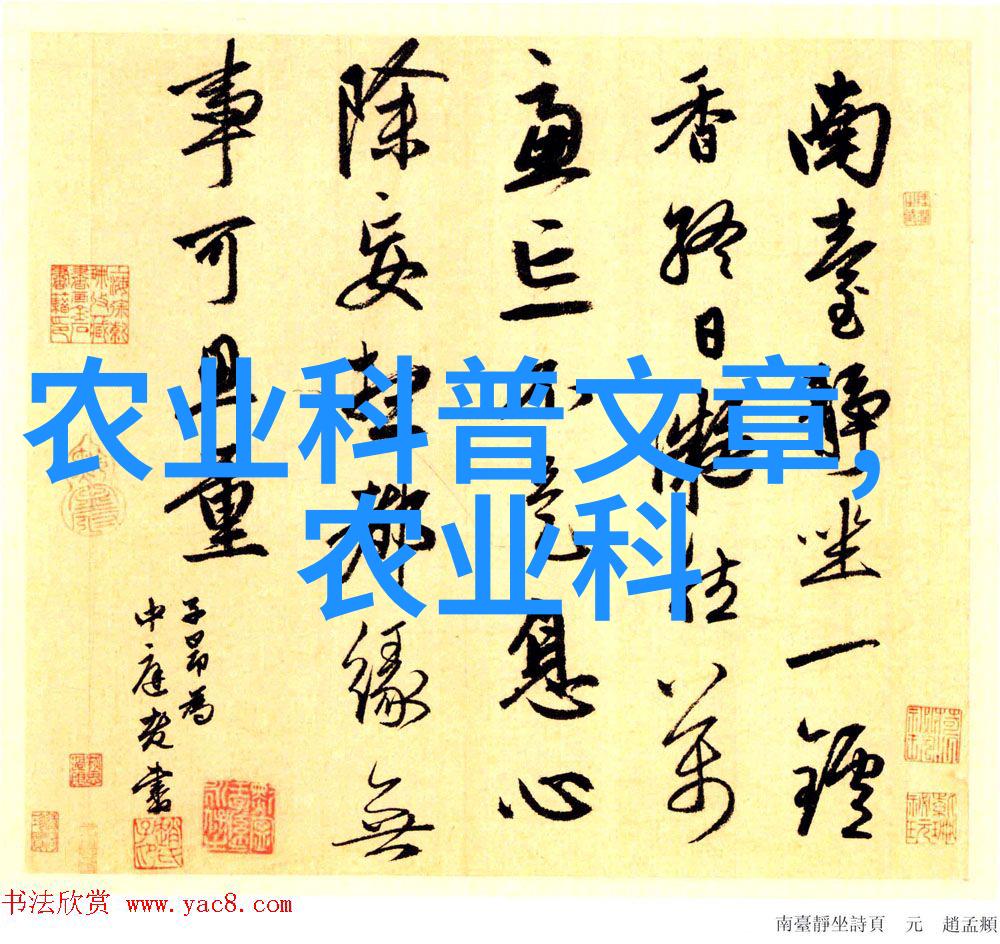 南臺靜坐一鑪
香終日凝然萬
慮亡不是息心
除妄想都緣無
事可思量
子昂為
中庭老書
农业科普文章,
农业科
书法欣赏 www.yac8.com
南臺靜坐詩頁 元 趙孟頫